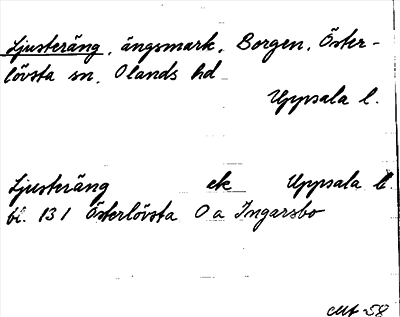 Ljusteräng, ängsmark, Borgen, Öster-
lövsta sn, Olands hd
Uppsala l.
Ljusteräng ek Uppsala l.
bl. 131 Österlövsta O a Ingarsbo
-58